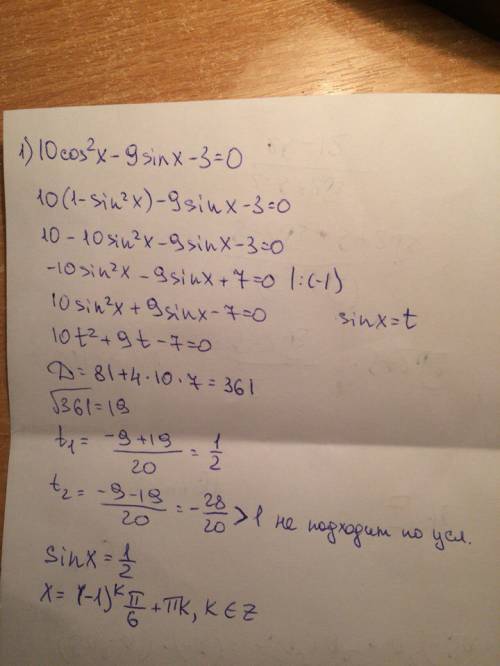 1) 10cos²x - 9sinx - 3 = 0
10(1 - sin²x) - 9sinx - 3 = 0
10 - 10sin²x - 9sinx - 3 = 0
-10sin²x - 9sinx + 7 = 0 |:(-1)
10sin²x + 9sinx - 7 = 0 sinx = t
10t² + 9t - 7 = 0
D = 81 + 4·10·7 = 361
√361 = 19
t₁ = (-9+19)/20 = 1/2
t₂ = (-9-19)/20 = -28/20 > 1 не подходит по усл.
sinx = 1/2
x = (-1)ᵏ π/6 + πk, k ∈ Z